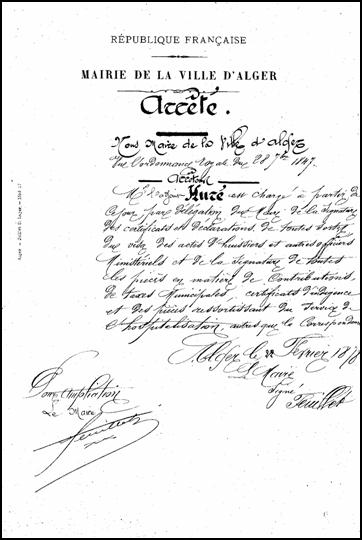 RÉPUBLIQUE FRANÇAISE
MAIRIE DE LA VILLE D'ALGER
Arrêté.
Nous Maire de la Ville d'Alger
Vu l'ordonnance royale du 28 7bre 1847.
Arrêtons
M. Huré est chargé à partir de
ce jour par délégation du Maire de la Signature
des certificats et déclarations de toutes sortes
du visa des actes d'huissiers et autres officiers
Ministériels et de la Signature de toutes
les pièces en matière de Contributions,
de taxes Municipales, certificats d'indigence
et des pièces ressortissant du Service de
l'hospitalisation, autres que la Correspondance
Alger le Février 1878
Le Maire
Signé
Feuillet
Pour Ampliation
Le Maire